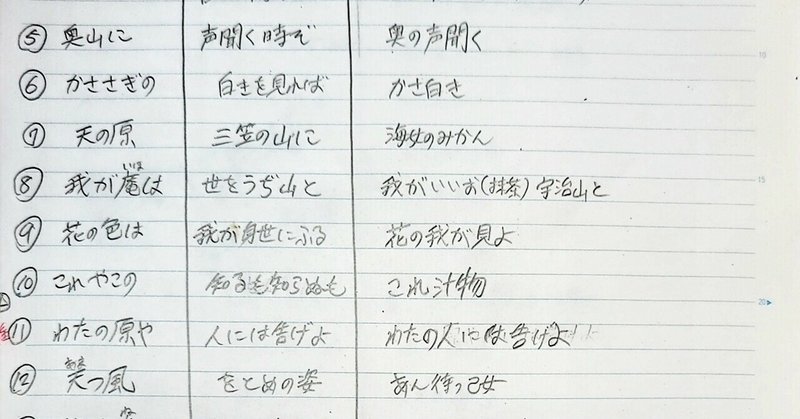 ⑤ 奥山に 声聞く時ぞ 奥の声聞く
⑥ かささぎの 白きを見れば かさ白き
⑦ 天の原 三笠の山に 海女のみかん
⑧ 我が庵は いほ 世をうぢ山と 我がいいお(抹茶) 宇治山と
⑨ 花の色は 我が身世にふる 花の我が見よ
⑩ これやこの 知るも知らぬも これ汁物
⑪ わたの原や 人には告げよ わたの人には告げよ
⑫ 天つ風 あま をとめの姿 あん待つ乙女
10
15
20